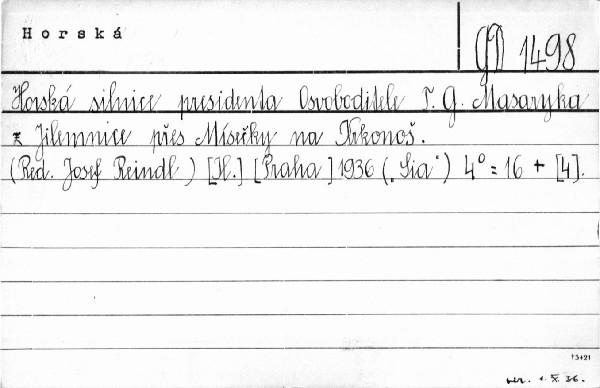 Horská
GD 1498
Horská silnice presidenta Osvoboditele T. G. Masaryka
z Jilemnice přes Mísečky na Krkonoš.
(Red. Josef Reindl) [Il.] [Praha] 1936 („Sia“) 4° = 16 + [4].
13421